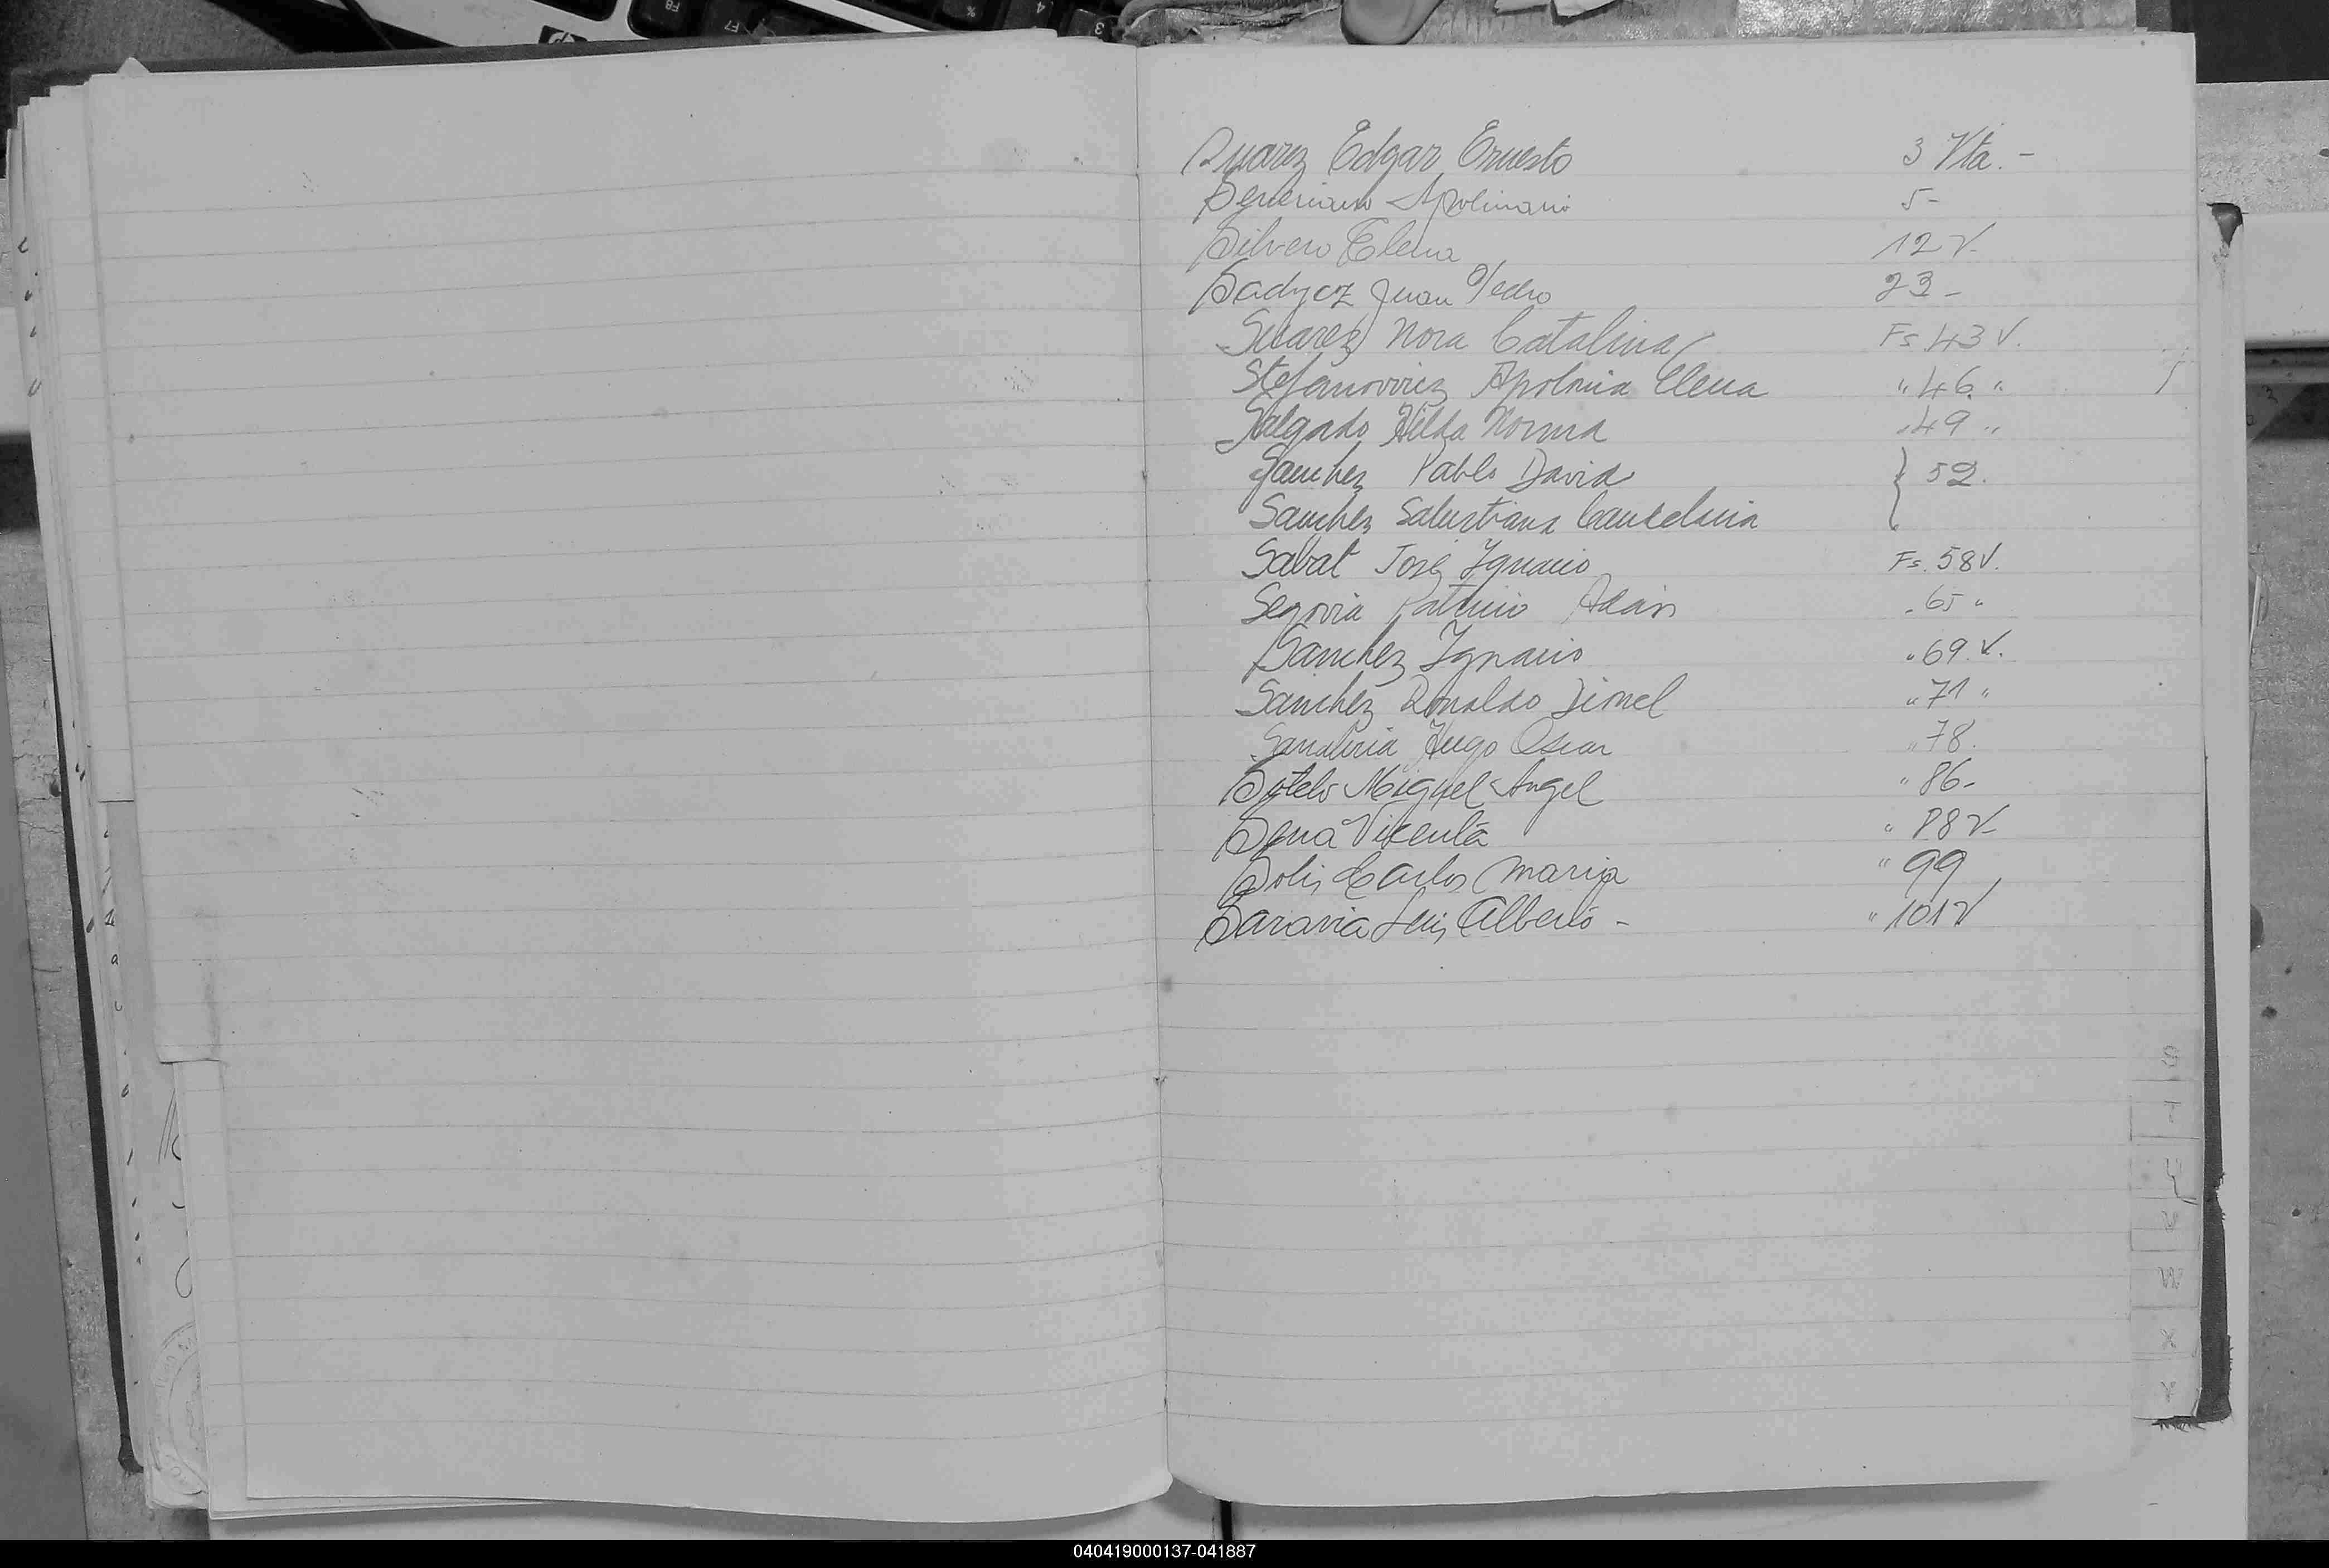 Suarez Edgar Ernesto 3 Vta. -
Severiano Apolinario 5 -
Silvero Elena 12 V-
Sadycz Juan Pedro 23 -
Suarez Nora Catalina Fs 43 V.
Stefanovicz Apolonia Elena " 46. "
Salgado Hilda Norma " 49 "
Sanchez Pablo David } 52.
Sanchez Salustiana Candelaria
Sabat José Ignacio Fs. 58 V.
Segovia Patricio Adán " 65 "
Sanchez Ignacio " 69. V.
Sanchez Ronaldo Lionel " 71 "
Sanabria Hugo Oscar " 78.
Sotelo Miguel Angel " 86 -
Sena Vicenta " 88 V-
Solis Carlos Maria " 99
Saravia Luis Alberto - " 101 V
S
T
V
W
X
Y
040419000137-041887